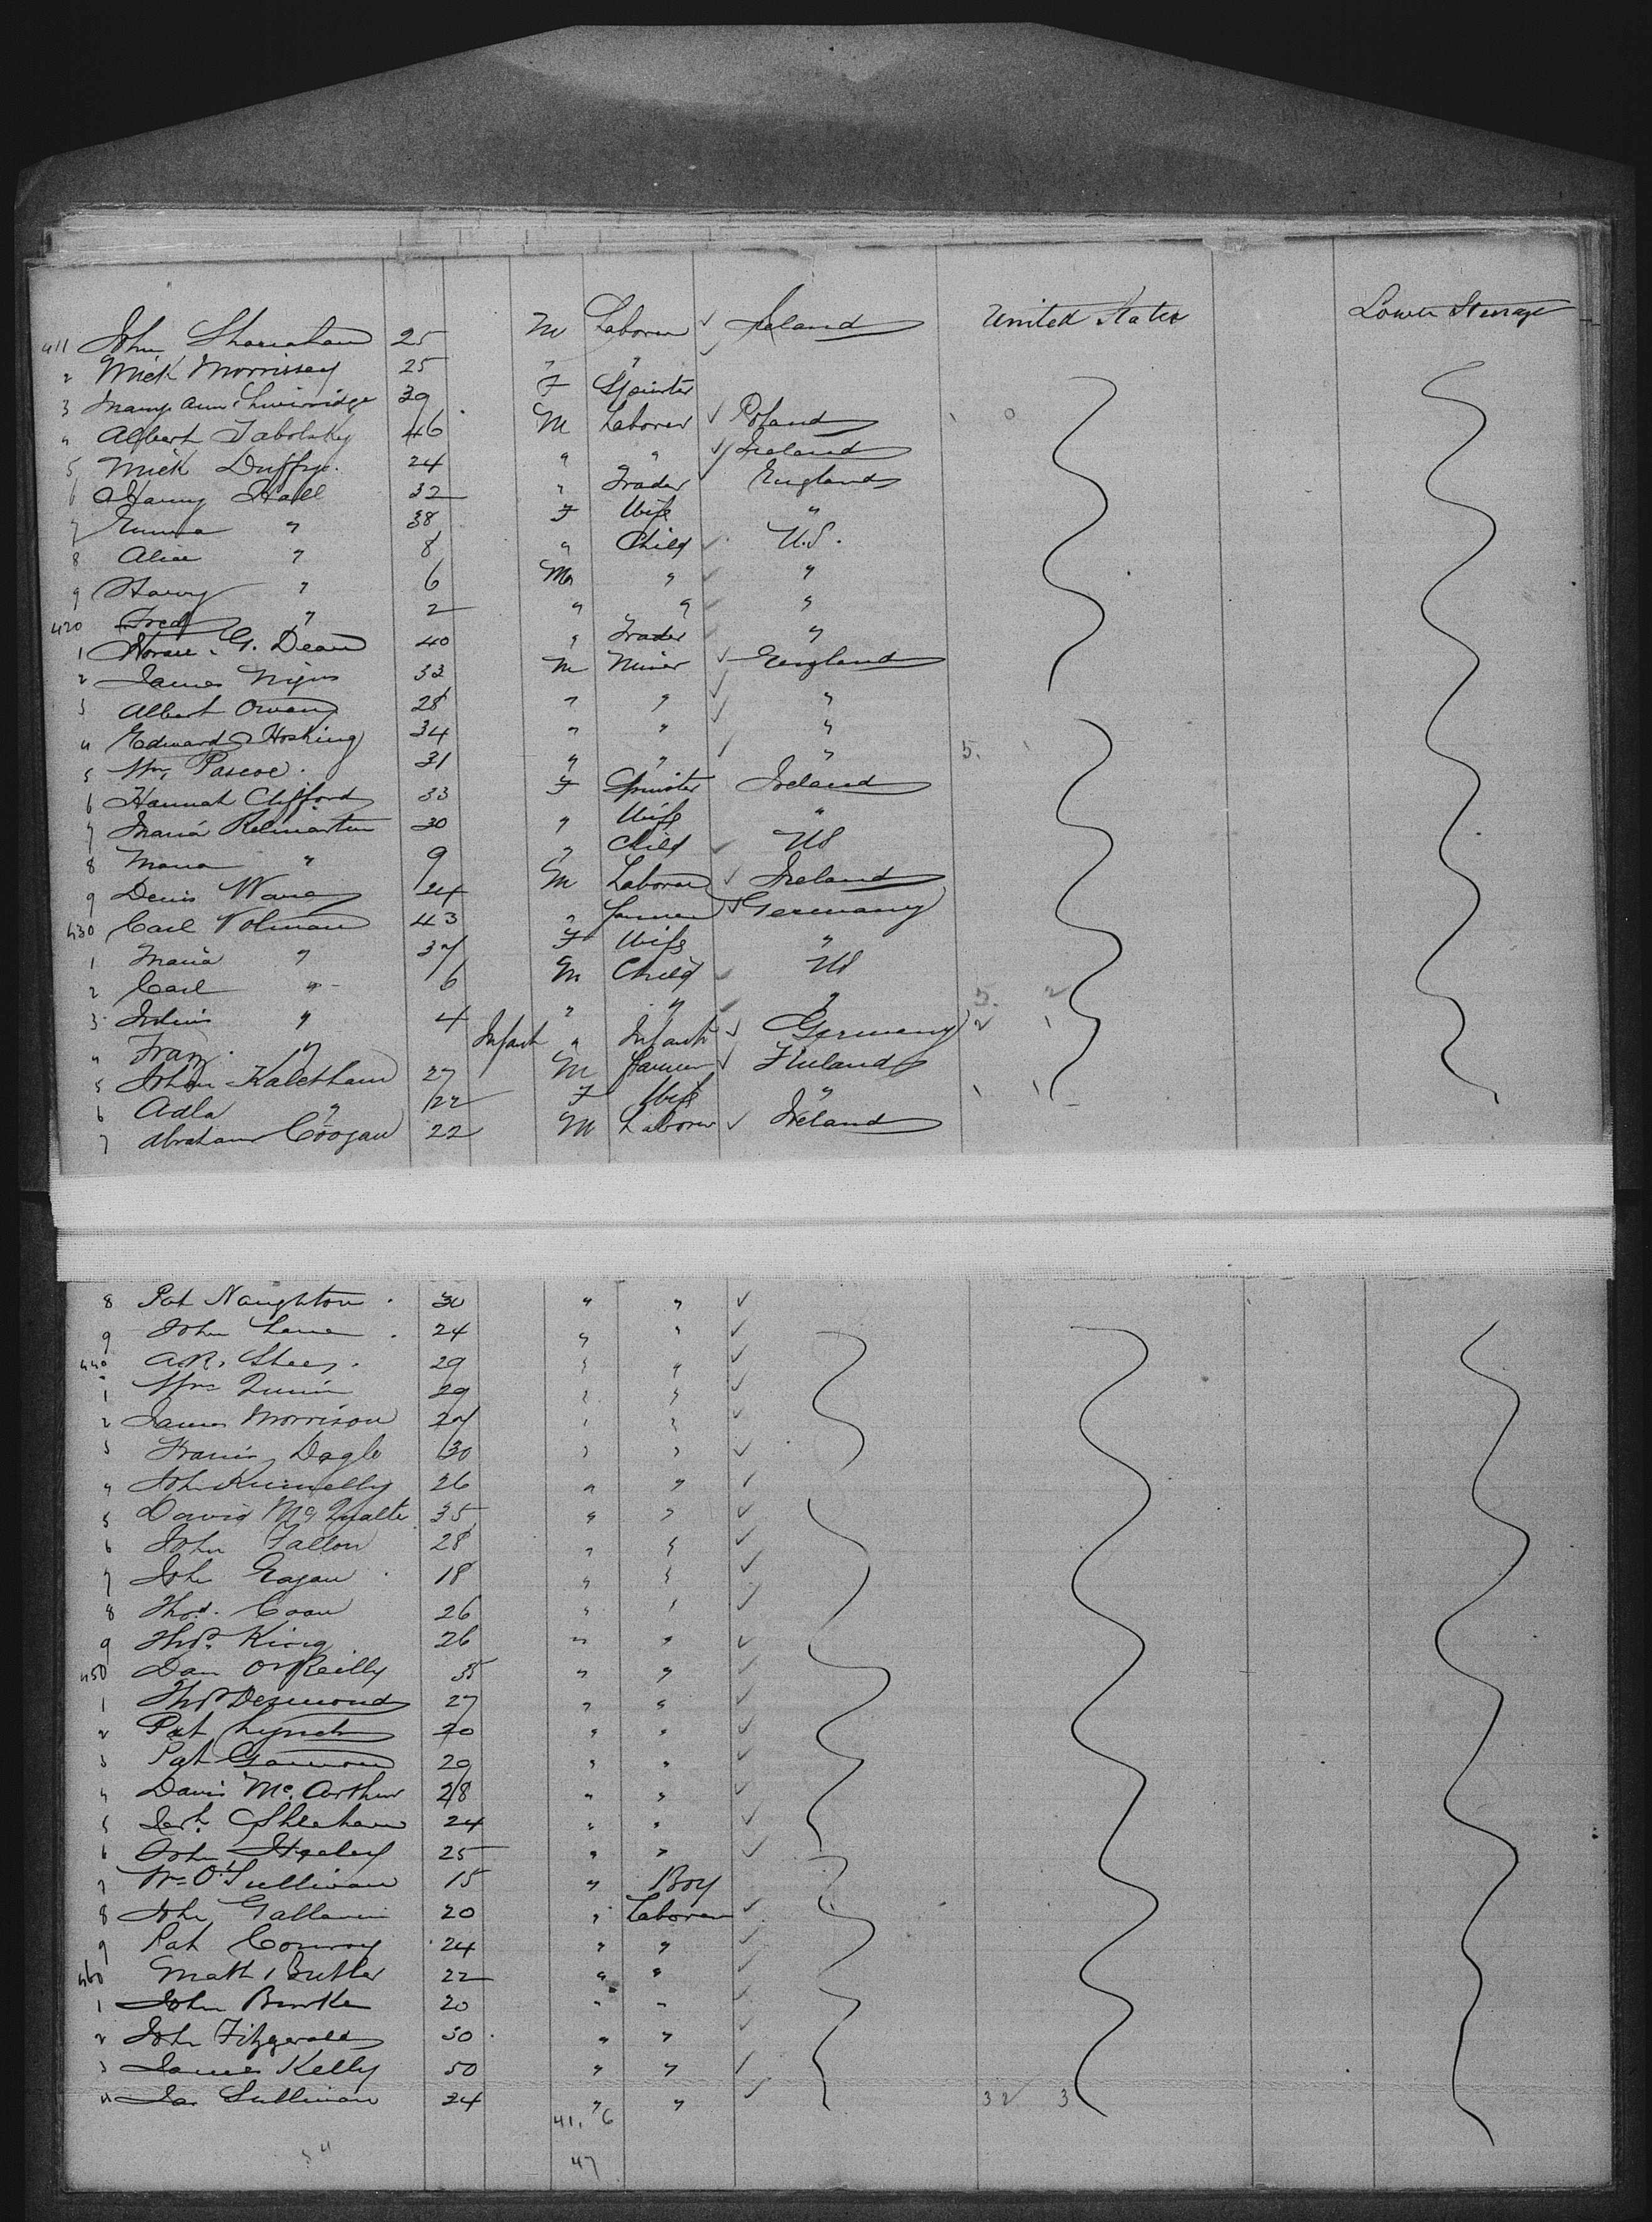 411 John Shanahan 25 M Laborer ✓ Ireland United States Lower Steerage
2 Mick Morrissey 25 " " ✓
3 Mary Ann 39 F Spinster
4 Albert Tabolsky 46 M Laborer ✓ Poland 1 0
5 Mick Duffy. 24 " " ✓ Ireland
6 Harry Hall 32 " Trader ✓ England
7 Emma " 38 F Wife "
8 Alice " 8 " Child ✓ U.S.
9 Harry " 6 M " ✓ "
420 Fred " 2 " " ✓ "
1 Horace G. Dean 40 " Trader ✓ "
2 James 33 M Miner ✓ England
3 Albert 28 " " ✓ "
4 Edward Hosking 34 " " ✓ "
5 Wm Pascoe. 31 " " ✓ " 5. 1
6 Hannah Clifford 33 F Spinster Ireland
7 Maria Kelmartin 30 " Wife "
8 Maria " 9 " Child ✓ US
9 Denis Ware 24 M Laborer ✓ Ireland
430 Carl Volman 43 " Farmer ✓ Germany
1 Maria " 37 F Wife "
2 Carl " 6 M Child ✓ US
3 " 4 " " ✓ " 5. 2
4 Franz " Infant " Infant ✓ Germany 2 1
5 John Kaletham 27 M Farmer ✓ Finland
6 Adla " 22 F Wife " 1 1
7 Abraham Coogan 22 M Laborer ✓ Ireland
8 Pat Naughton 30 " " ✓
9 John 24 " " ✓
440 A.R. Shee 29 " " ✓
1 29 " " ✓
2 James Morrison 27 " " ✓
3 Francis Dagle 30 " " ✓
4 John Kennelly 26 " " ✓
5 David 35 " " ✓
6 John Fallon 28 " " ✓
7 John Eagan 18 " " ✓
8 Thos. Coan 26 " " ✓
9 Thos. King 26 " " ✓
450 Dan O'Reilly 35 " " ✓
1 Thos Desmond 27 " " ✓
2 Pat Lynch 20 " " ✓
3 Pat Gannon 29 " " ✓
4 David Mc. Arthur 28 " " ✓
5 Jerh. Sheehan 24 " " ✓
6 John Healey 25 " " ✓
7 Wm O'Sullivan 15 " Boy
8 John Gallavin 20 " Laborer ✓
9 Pat Conroy 24 " " ✓
460 Math Butler 22 " " ✓
1 John Burke 20 " " ✓
2 John Fitzgerald 30 " " ✓
3 James Kelly 50 " " ✓
4 Jas Sullivan 24 " " ✓ 32 3
41. 6
54 47